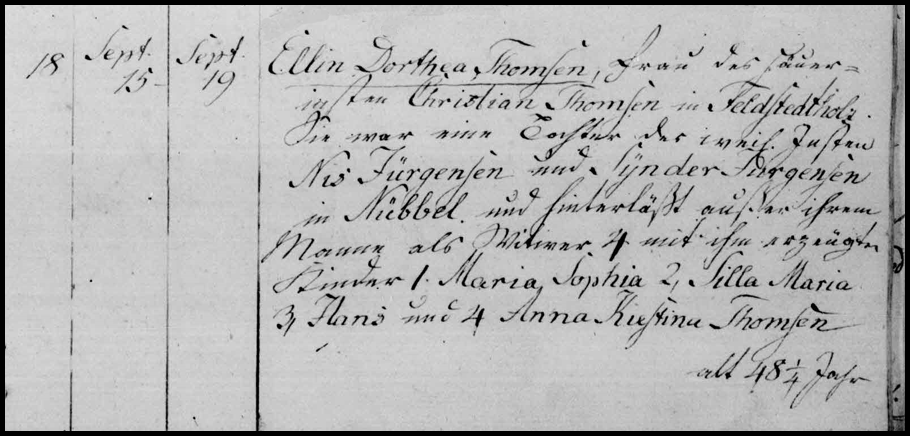 18 Sept. 15 Sept. 19 Ellin Dorthea Thomsen, Frau des Häuer=
insten Christian Thomsen in Feldstedtholz.
Sie war eine Tochter der weil. Insten
Nis Jürgensen und Synder Jürgensen
in Nübbel. und hinterläßt außer ihrem
Manne als Witwer 4 mit ihm erzeugte
Kinder 1. Maria Sophia 2, Silla Maria
3, Hans und 4 Anna Kiestina Thomsen
alt 48 1/4 Jahr